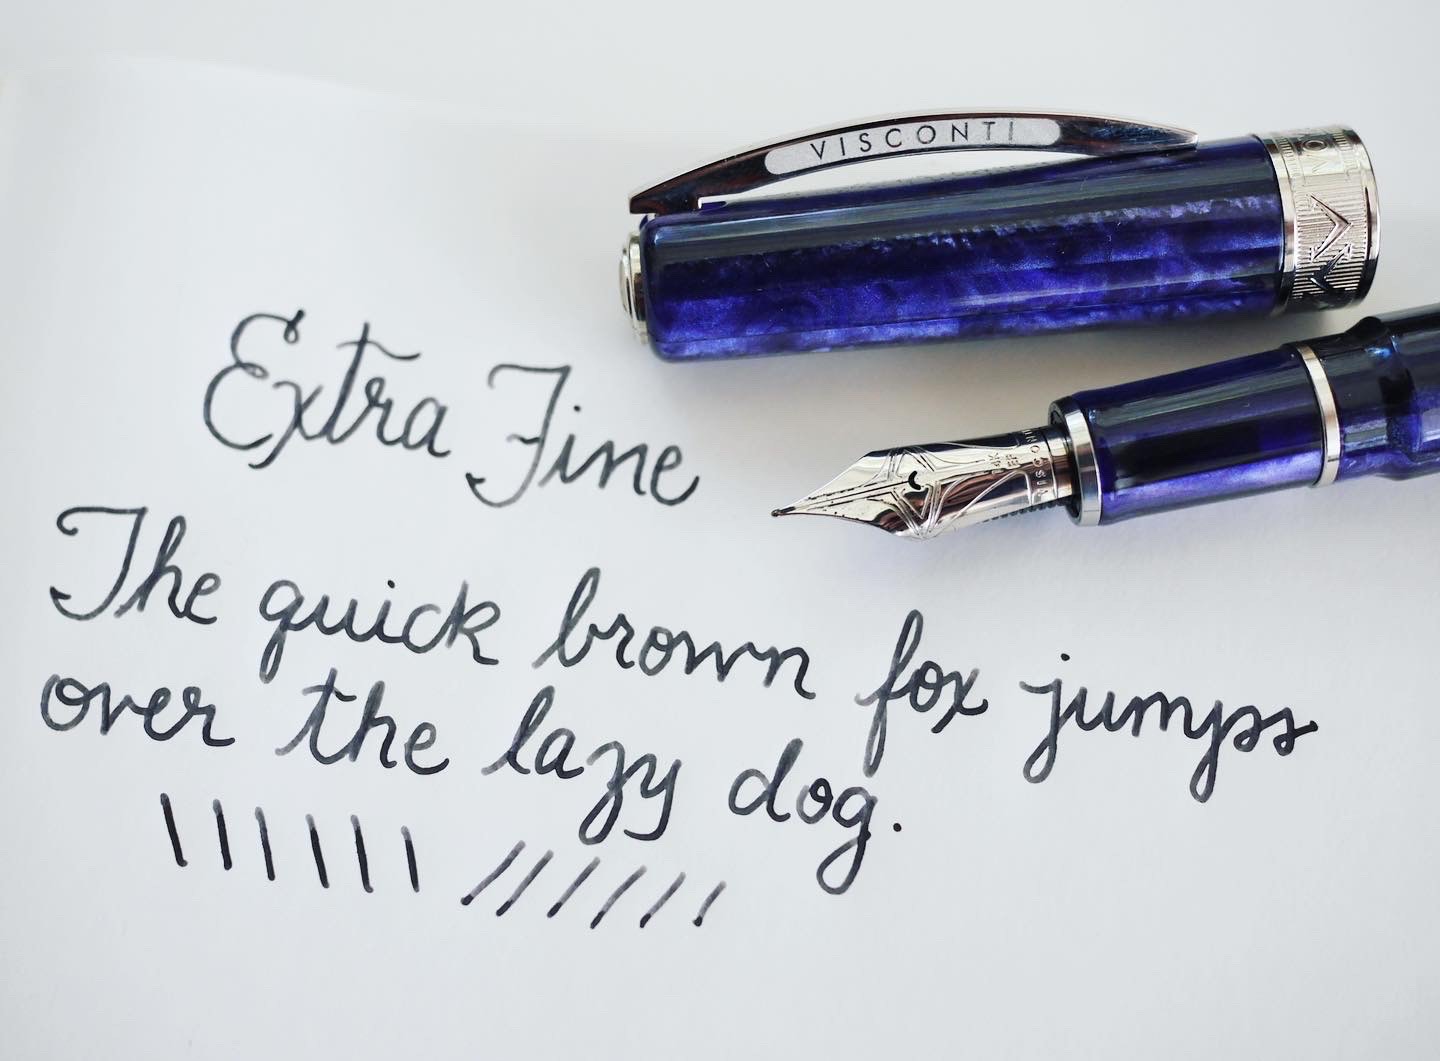 VISCONTI
Extra Fine
The quick brown fox jumps
over the lazy dog.
14K
EF